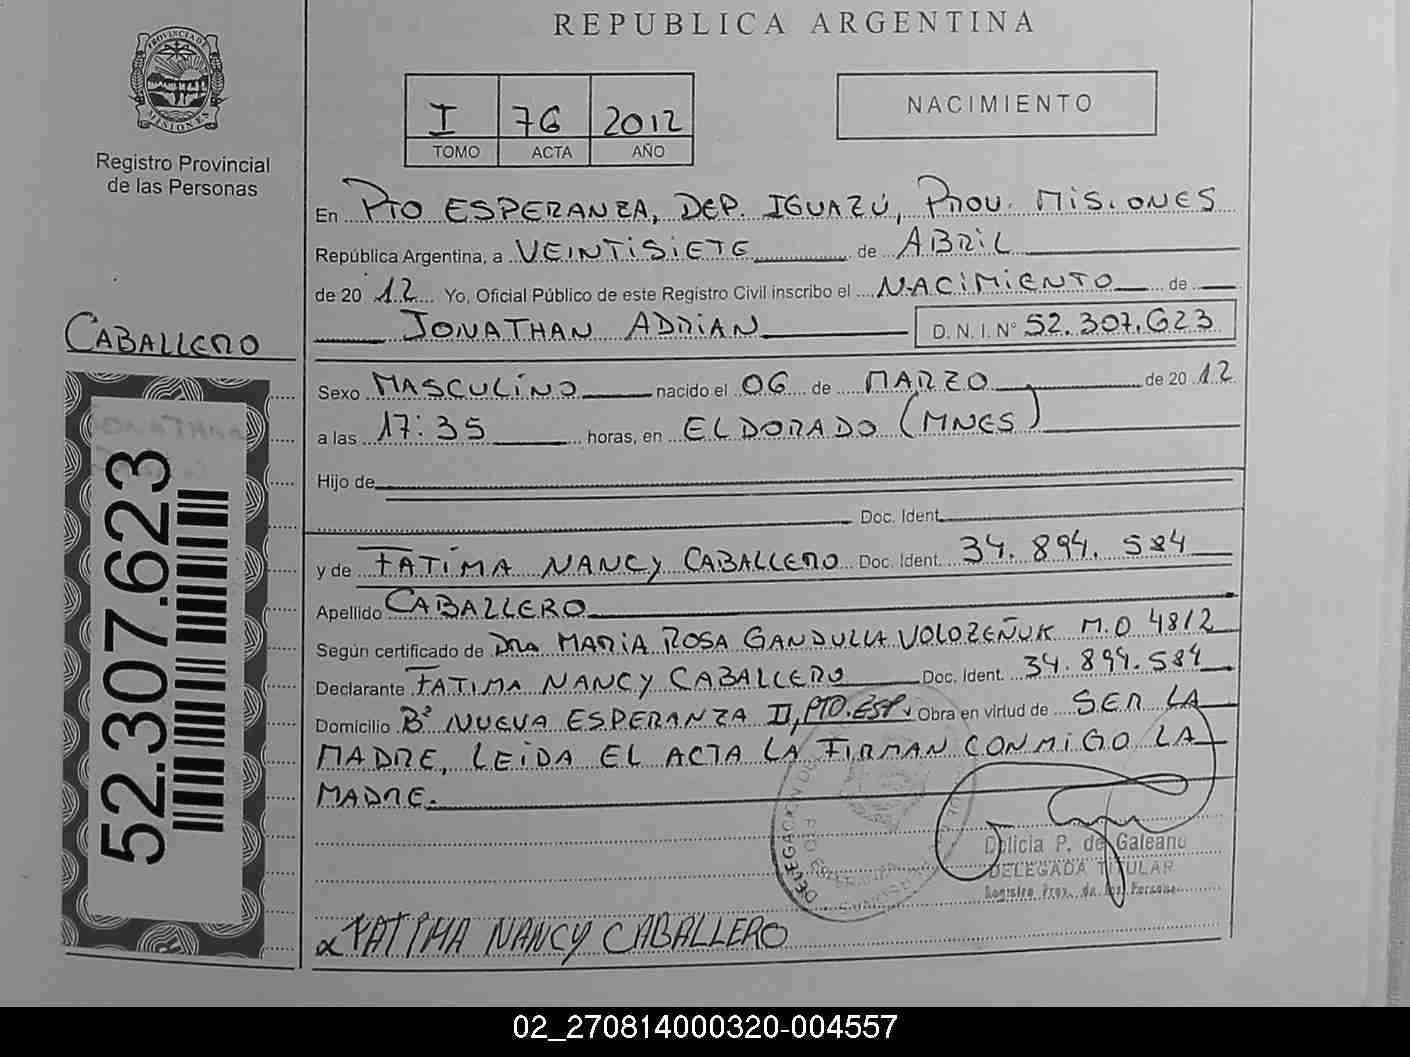 REPUBLICA ARGENTINA
PROVINCIA DE MISIONES
Registro Provincial
de las Personas
I 76 2012
TOMO ACTA AÑO
NACIMIENTO
En PTO ESPERANZA, DEP. IGUAZÚ, PROV. MISIONES
República Argentina, a VEINTISIETE de ABRIL
de 20 12 Yo, Oficial Público de este Registro Civil inscribo el NACIMIENTO de
JONATHAN ADRIAN D.N.I. Nº 52.307.623
CABALLERO
52.307.623
Sexo MASCULINO nacido el 06 de MARZO de 20 12
a las 17:35 horas, en ELDORADO (MNES)
Hijo de
Doc. Ident.
y de FATIMA NANCY CABALLERO Doc. Ident. 34.894.584
Apellido CABALLERO
Según certificado de DRA MARIA ROSA GANDULLA VOLOZEÑUK M.O 4812
Declarante FATIMA NANCY CABALLERO Doc. Ident. 34.894.584
Domicilio Bº NUEVA ESPERANZA II, PTO. ESP. Obra en virtud de SER LA
MADRE, LEIDA EL ACTA LA FIRMAN CONMIGO LA
MADRE.
Delicia P. de Galeano
DELEGADA TITULAR
Registro Prov. de las Personas
FATIMA NANCY CABALLERO
02_270814000320-004557